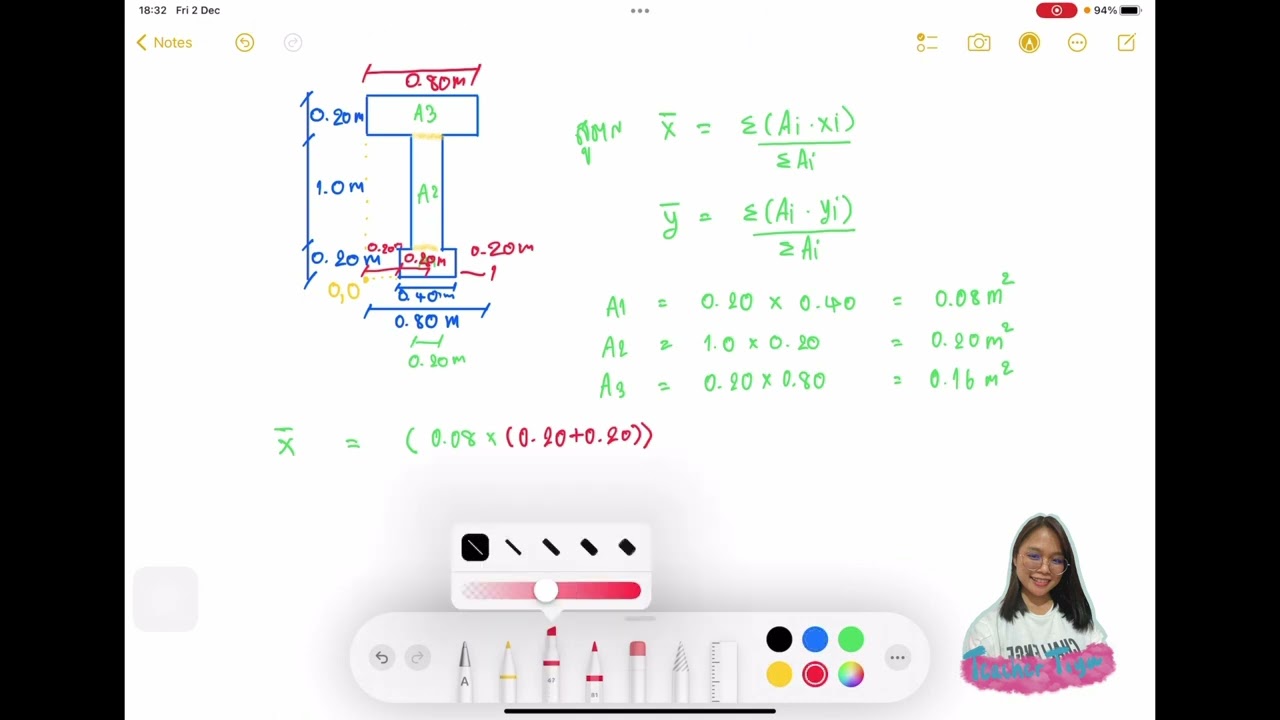 18:32 Fri 2 Dec
94%
Notes
0.80m
0.20m
A3
1.0m
A2
0.20m
0.20m
0.20m
0,0
0.40m
0.80 m
0.20m
สูตร x̄ = Σ(Ai · xi) / ΣAi
ȳ = Σ(Ai · yi) / ΣAi
A1 = 0.20 x 0.40 = 0.08 m²
A2 = 1.0 x 0.20 = 0.20 m²
A3 = 0.20 x 0.80 = 0.16 m²
x̄ = (0.08 x (0.20+0.20))
A
67
81
CHALLENGE